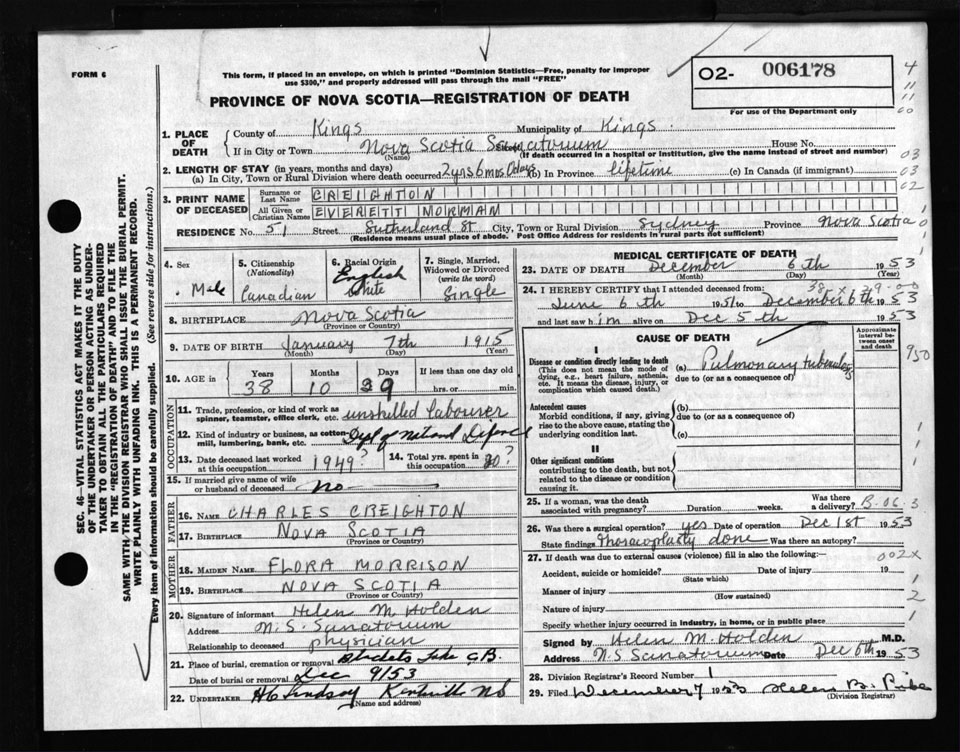 FORM 6
This form, if placed in an envelope, on which is printed "Dominion Statistics—Free, penalty for improper
use $300," and properly addressed will pass through the mail "FREE"
PROVINCE OF NOVA SCOTIA—REGISTRATION OF DEATH
O2- 006178
For use of the Department only
4
11
11
00
03
03
02
1. PLACE OF DEATH
County of Kings Municipality of Kings
If in City or Town Nova Scotia Sanatorium House No.
(Name) (If death occurred in a hospital or institution, give the name instead of street and number)
2. LENGTH OF STAY (in years, months and days)
(a) In City, Town or Rural Division where death occurred 2 yrs 6 mos 0 days (b) In Province lifetime (c) In Canada (if immigrant)
3. PRINT NAME OF DECEASED
Surname or Last Name CREIGHTON
All Given or Christian Names EVERETT MORMAN
RESIDENCE No. 51 Street Sutherland St City, Town or Rural Division Sydney Province Nova Scotia
(Residence means usual place of abode. Post Office Address for residents in rural parts not sufficient)
4. Sex
Male
5. Citizenship (Nationality)
Canadian
6. Racial Origin
English
White
7. Single, Married, Widowed or Divorced (write the word)
Single
8. BIRTHPLACE Nova Scotia
(Province or Country)
9. DATE OF BIRTH January 7th 1915
(Month) (Day) (Year)
10. AGE in Years Months Days If less than one day old
38 10 29 hrs. or min.
OCCUPATION
11. Trade, profession, or kind of work as spinner, teamster, office clerk, etc. unskilled labourer
12. Kind of industry or business, as cotton-mill, lumbering, bank, etc. Dept of National Defence
13. Date deceased last worked at this occupation 1949?
14. Total yrs. spent in this occupation 20?
15. If married give name of wife or husband of deceased no
FATHER
16. Name CHARLES CREIGHTON
17. Birthplace NOVA SCOTIA
(Province or Country)
MOTHER
18. MAIDEN NAME FLORA MORRISON
19. BIRTHPLACE NOVA SCOTIA
(Province or Country)
20. Signature of informant Helen M. Holden
Address N. S. Sanatorium
Relationship to deceased physician
21. Place of burial, cremation or removal C.B.
Date of burial or removal Dec 9/53
22. UNDERTAKER Lindsay Kentville NS
(Name and address)
MEDICAL CERTIFICATE OF DEATH
23. DATE OF DEATH December 6th 1953
(Month) (Day) (Year)
24. I HEREBY CERTIFY that I attended deceased from:
June 6th 1951 to December 6th 1953
and last saw him alive on Dec 5th 1953
CAUSE OF DEATH
Approximate interval between onset and death
I
Disease or condition directly leading to death
(This does not mean the mode of dying, e.g., heart failure, asthenia, etc. It means the disease, injury, or complication which caused death.)
(a) Pulmonary tuberculosis
due to (or as a consequence of)
Antecedent causes
Morbid conditions, if any, giving rise to the above cause, stating the underlying condition last.
(b)
due to (or as a consequence of)
(c)
II
Other significant conditions
contributing to the death, but not related to the disease or condition causing it.
25. If a woman, was the death associated with pregnancy? Duration weeks. Was there a delivery?
26. Was there a surgical operation? yes Date of operation Dec 1st 1953
State findings thoracoplasty done Was there an autopsy?
27. If death was due to external causes (violence) fill in also the following:—
Accident, suicide or homicide? Date of injury 19
(State which)
Manner of injury
(How sustained)
Nature of injury
Specify whether injury occurred in industry, in home, or in public place
Signed by Helen M. Holden M.D.
Address N. S Sanatorium Date Dec 6th 1953
28. Division Registrar's Record Number 1
29. Filed December 7 1953 Helen B.
(Division Registrar)
950
002X
SEC. 46—VITAL STATISTICS ACT MAKES IT THE DUTY
OF THE UNDERTAKER OR PERSON ACTING AS UNDER-
TAKER TO OBTAIN ALL THE PARTICULARS REQUIRED
IN THE "REGISTRATION OF DEATH" AND TO FILE THE
SAME WITH THE DIVISION REGISTRAR WHO SHALL ISSUE THE BURIAL PERMIT.
WRITE PLAINLY WITH UNFADING INK. THIS IS A PERMANENT RECORD.
Every item of information should be carefully supplied. (See reverse side for instructions.)